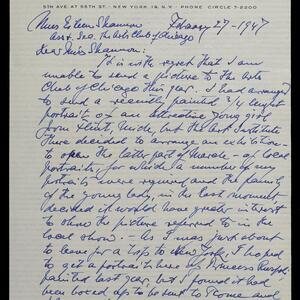 5TH AVE. AT 55TH ST. · NEW YORK, 19, N.Y. · PHONE CIRCLE 7-2200
Miss Eileen Shannon February 27 - 1947
Ass't Sec. The Arts Club of Chicago
Dear Miss Shannon:
It is with regret that I am
unable to send a picture to the Arts
Club of Chicago this year. I had arranged
to send a recently painted 3/4 length
portrait of an attractive young girl
from Flint, Mich, but the Art Institute
there decided to arrange an exhibition
to open the latter part of March - of local
portraits, for which a number of my
portraits were required and the family
of the young lady, in the last moment
decided it would have greater interest
to show the picture referred to in the
local show. - As I was just about
to leave for a trip to New York, I hoped
to get a portrait here of Princess
painted last year, but I found it had
been boxed up to be sent to Rome and